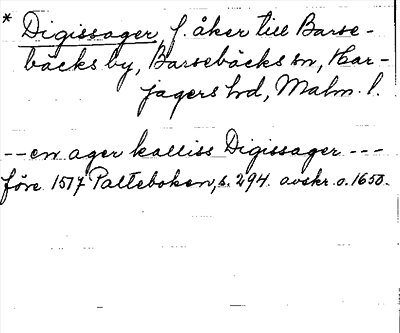 * Digissager, f. åker till Barse-
bäcks by, Barsebäcks sn, Har-
jagers hd, Malm. l.
--en ager kalliss Digissager ---
före 1517 Palteboken, s. 294. avskr. o. 1650.